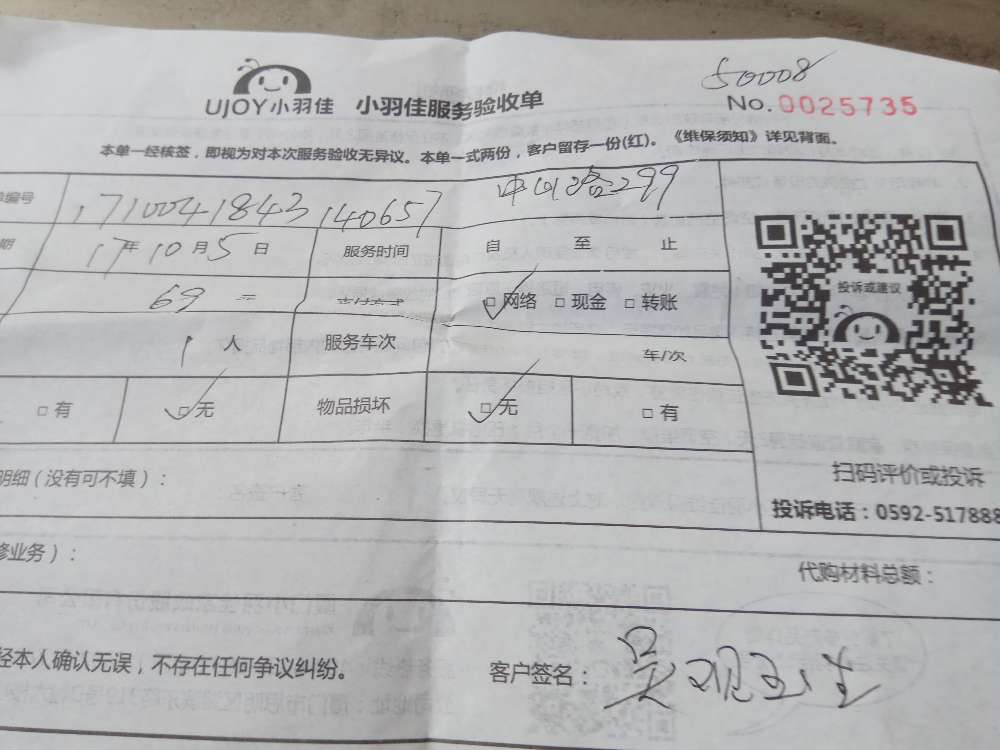 50008
UJOY小羽佳 小羽佳服务验收单 No.0025735
本单一经核签，即视为对本次服务验收无异议。本单一式两份，客户留存一份(红)。《维保须知》详见背面。
单编号 1710041843140657 299
期 17年10月5日 服务时间 自 至 止
投诉或建议
69 支付方式 □网络 □现金 □转账
1人 服务车次 车/次
□有 □无 物品损坏 □无 □有
扫码评价或投诉
明细（没有可不填）：
投诉电话：0592-517888
修业务）：
代购材料总额：
经本人确认无误，不存在任何争议纠纷。
客户签名：